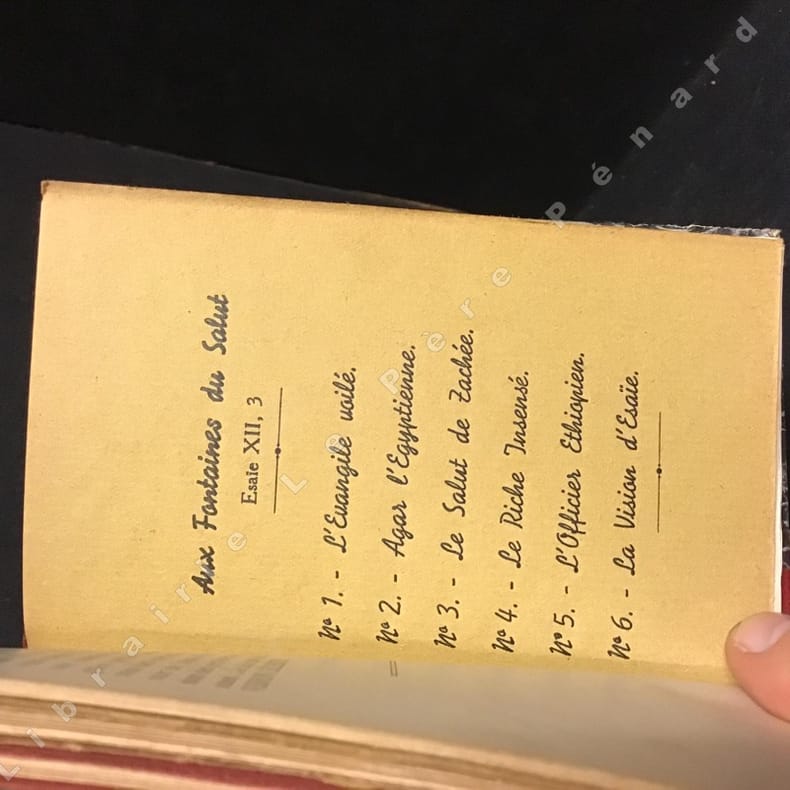 Aux Fontaines du Salut
Esaïe XII, 3
Nº 1. - L'Evangile voilé.
Nº 2. - Agar l'Egyptienne.
Nº 3. - Le Salut de Zachée.
Nº 4. - Le Riche Insensé.
Nº 5. - L'Officier Ethiopien.
Nº 6. - La Vision d'Esaïe.
Librairie Le Père Pénard